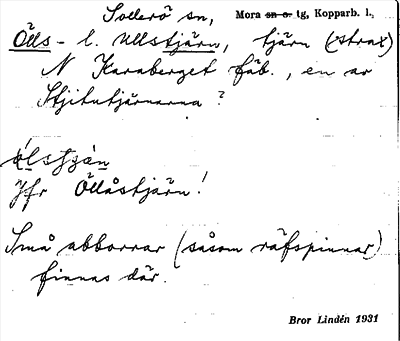 Sollerö sn, Mora sn o. tg, Kopparb. l.,
Ölls- l. Ullstjärn, tjärn (strax)
N Karaberget fäb., en av
Stjitutjärnarna?
ö̀lsʃɟä́n
Jfr Öllåstjärn!
Små abborrar (såsom räfspinnar)
finnas där.
Bror Lindén 1931